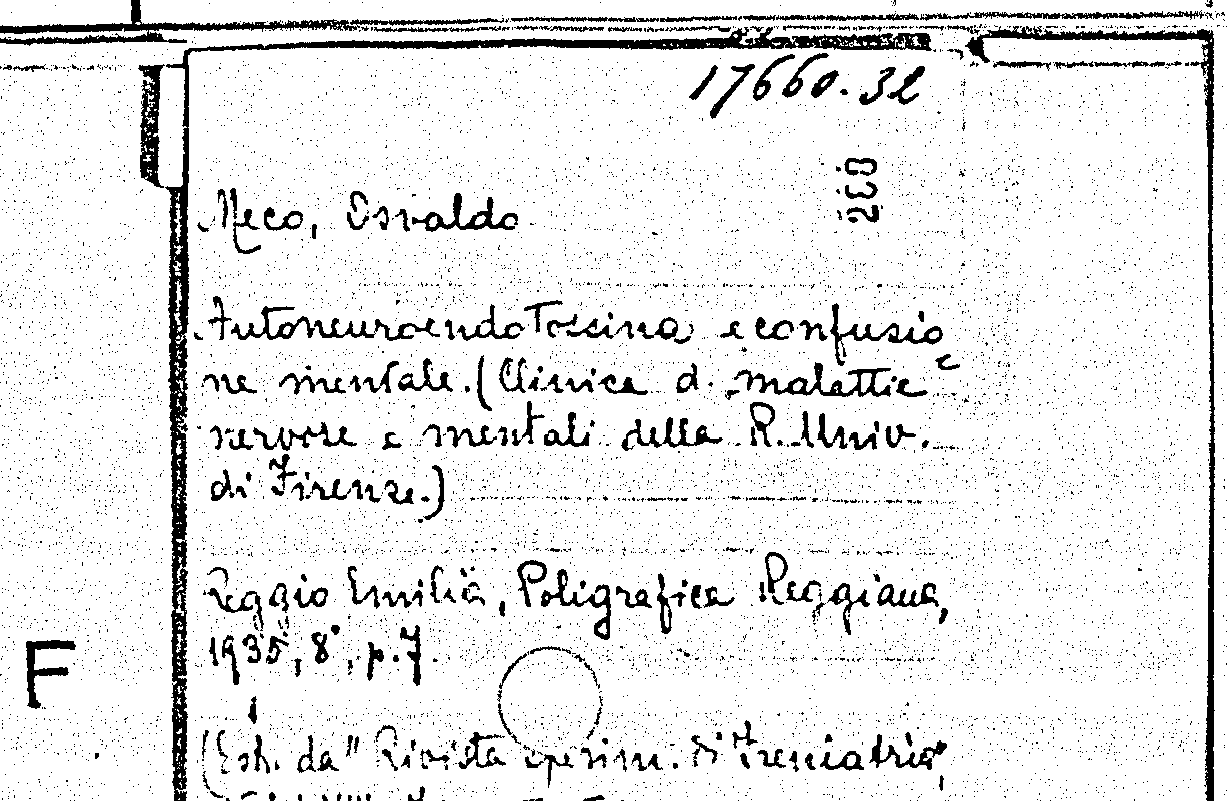 17660.32
230
Meco, Osvaldo
Autoneuroendotossina e confusio
ne mentale. (Clinica d. malattie
nervose e mentali della R. Univ.
di Firenze.)
Reggio Emilia, Poligrafica Reggiana,
1935, 8°, p. 7.
F
(Estr. da "Rivista sperim. di Freniatria",